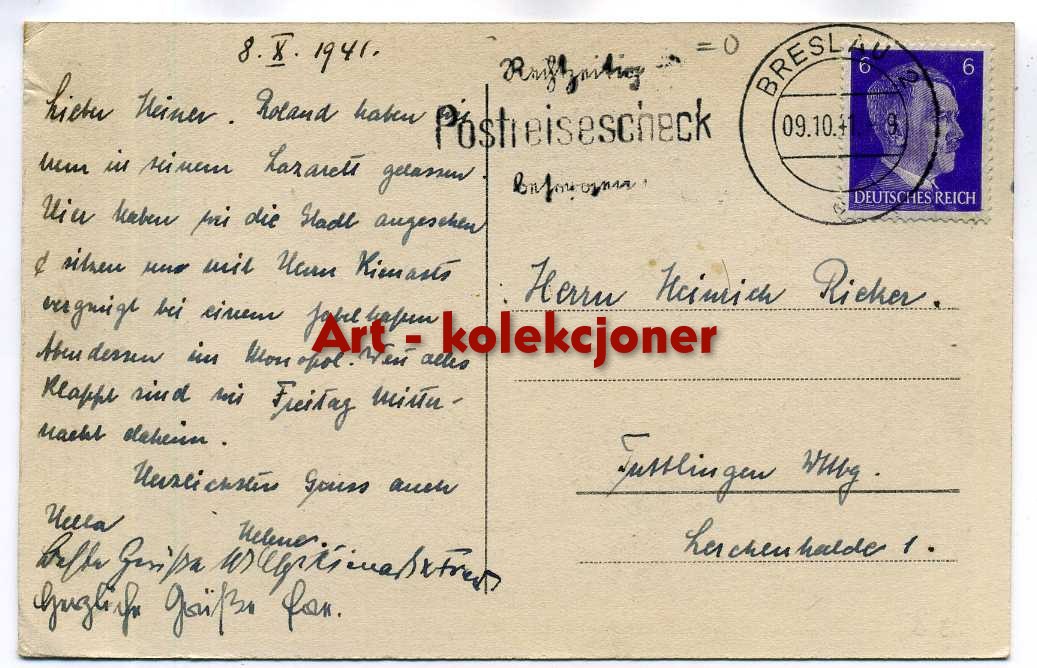 8. X. 1941.
Lieber Heiner. Roland haben wir
nun in seinem Lazarett gelassen.
Hier haben wir die Stadt angesehen
& sitzen nun mit Herrn Kienasts
vergnügt bei einem fabelhaften
Abendessen im Monopol. Wenn alles
klappt sind wir Freitag Mitter-
nacht daheim.
Herzlichsten Gruss auch
Hella
Helene.
Beste Grüße
Herzliche Grüße
=0
Rechtzeitig
Postreisescheck
besorgen
BRESLAU 2
09.10.41
6 6
DEUTSCHES REICH
Herrn Heinrich Ricker.
Art - kolekcjoner
Tuttlingen Wttbg.
Lerchenhalde 1.